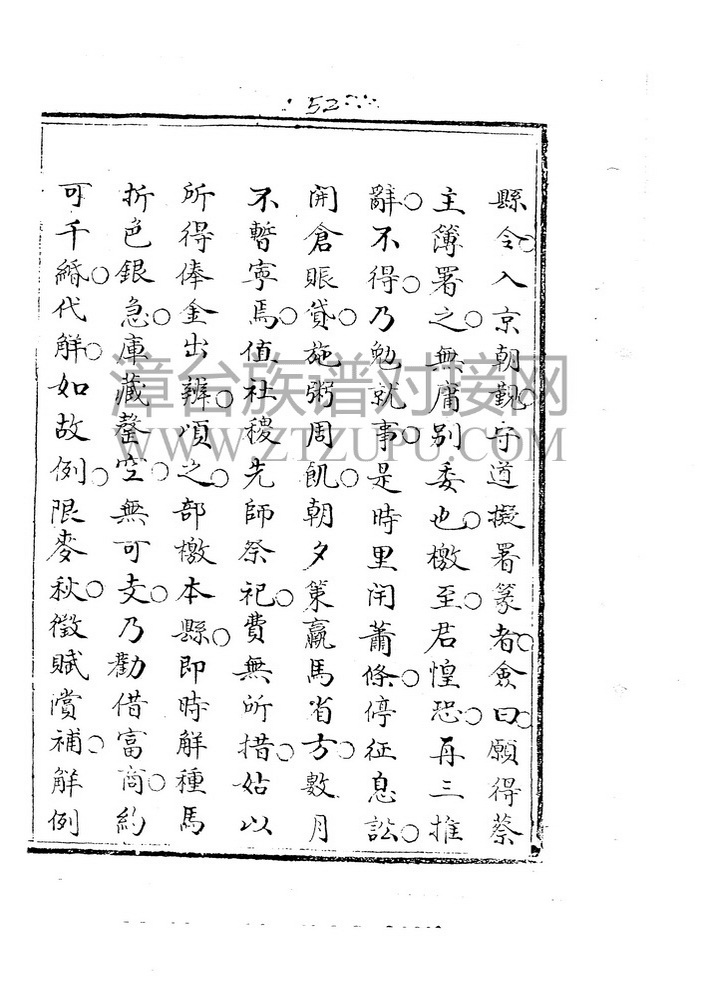 52
縣令入京朝覲○守道擬署篆者○僉曰○願得蔡
主簿署之○無庸別委也○檄至○君惶恐○再三推
辭○不得○乃勉就事○是時里閈蕭條○停征息訟○
開倉賑貸○施粥周飢○朝夕策羸馬省方○數月
不暫寧焉○值社稷先師祭祀○費無所措○姑以
所得俸金出辨○頃之○部檄本縣○即時解種馬
折色銀急○庫藏罄空○無可支○乃勸借富商○約
可千緡○代解○如故例○限麥秋○徵賦賞補○解例
漳台族谱对接网
WWW.ZTZUPU.COM